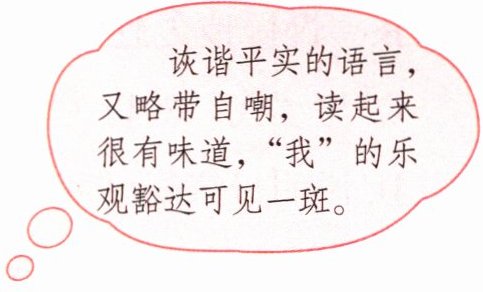 诙谐平实的语言，
又略带自嘲，读起来
很有味道，“我”的乐
观豁达可见一斑。